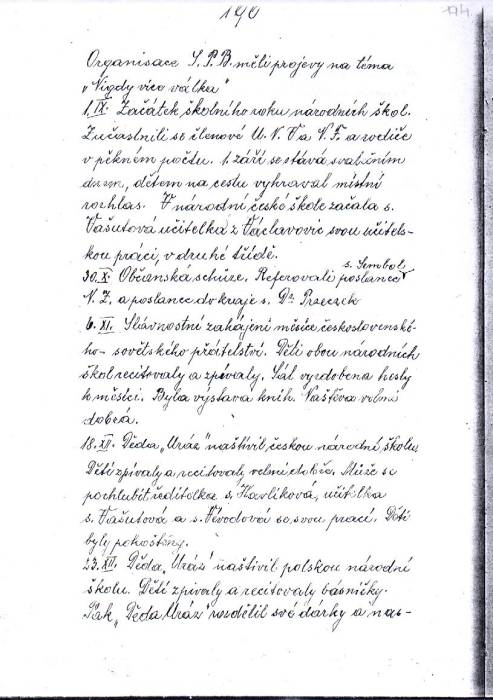 190
174.
Organisace S.P.B. měli projevy na téma
„Nigdy více válku"
1.IX. Začátek školního roku národních škol.
Zúčastnili se členové U.V. a V.F. a rodiče
v pěkném počtu. 1. září se stává svátečním
dnem, dětem na cestu vyhrával místní
rozhlas. V národní české škole začala s.
Vašutová učitelka z Václavovic svou učitels-
kou práci, v druhé třídě.
30.X. Občanská schůze. Referovali poslanec
s. Sembol
N.Z. a poslanec do kraje s. Dr. Przeczek
6.XI. Slávnostní zahájení měsíce československé-
ho-sovětského přátelství. Děti obou národních
škol recitovaly a zpívaly. Sál vyzdobena hesly
k měsíci. Byla výstava knih. Naštěva velmi
dobrá.
18.XII. Děda „Mráz" naštivil českou národní školu
Děti zpívaly a recitovaly velmi dobře. Může se
pochlubit ředitelka s. Havlíková, učitelka
s. Vašutová a s. Févodová se svou prací. Děti
byly pohoštěny.
23.XII. Děda „Mráz" naštivil polskou národní
školu. Děti zpívaly a recitovaly básničky.
Pak „Děda Mráz" rozdělil své dárky a nas-